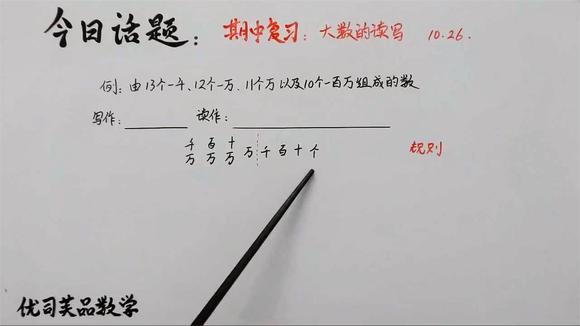 今日话题：期中复习：大数的读写 10.26.
例：由13个一千、12个一万、11个万以及10个一百万组成的数
写作：＿＿＿ 读作：＿＿＿
千万 百万 十万 万 千 百 十 个 规则
优司芙品数学